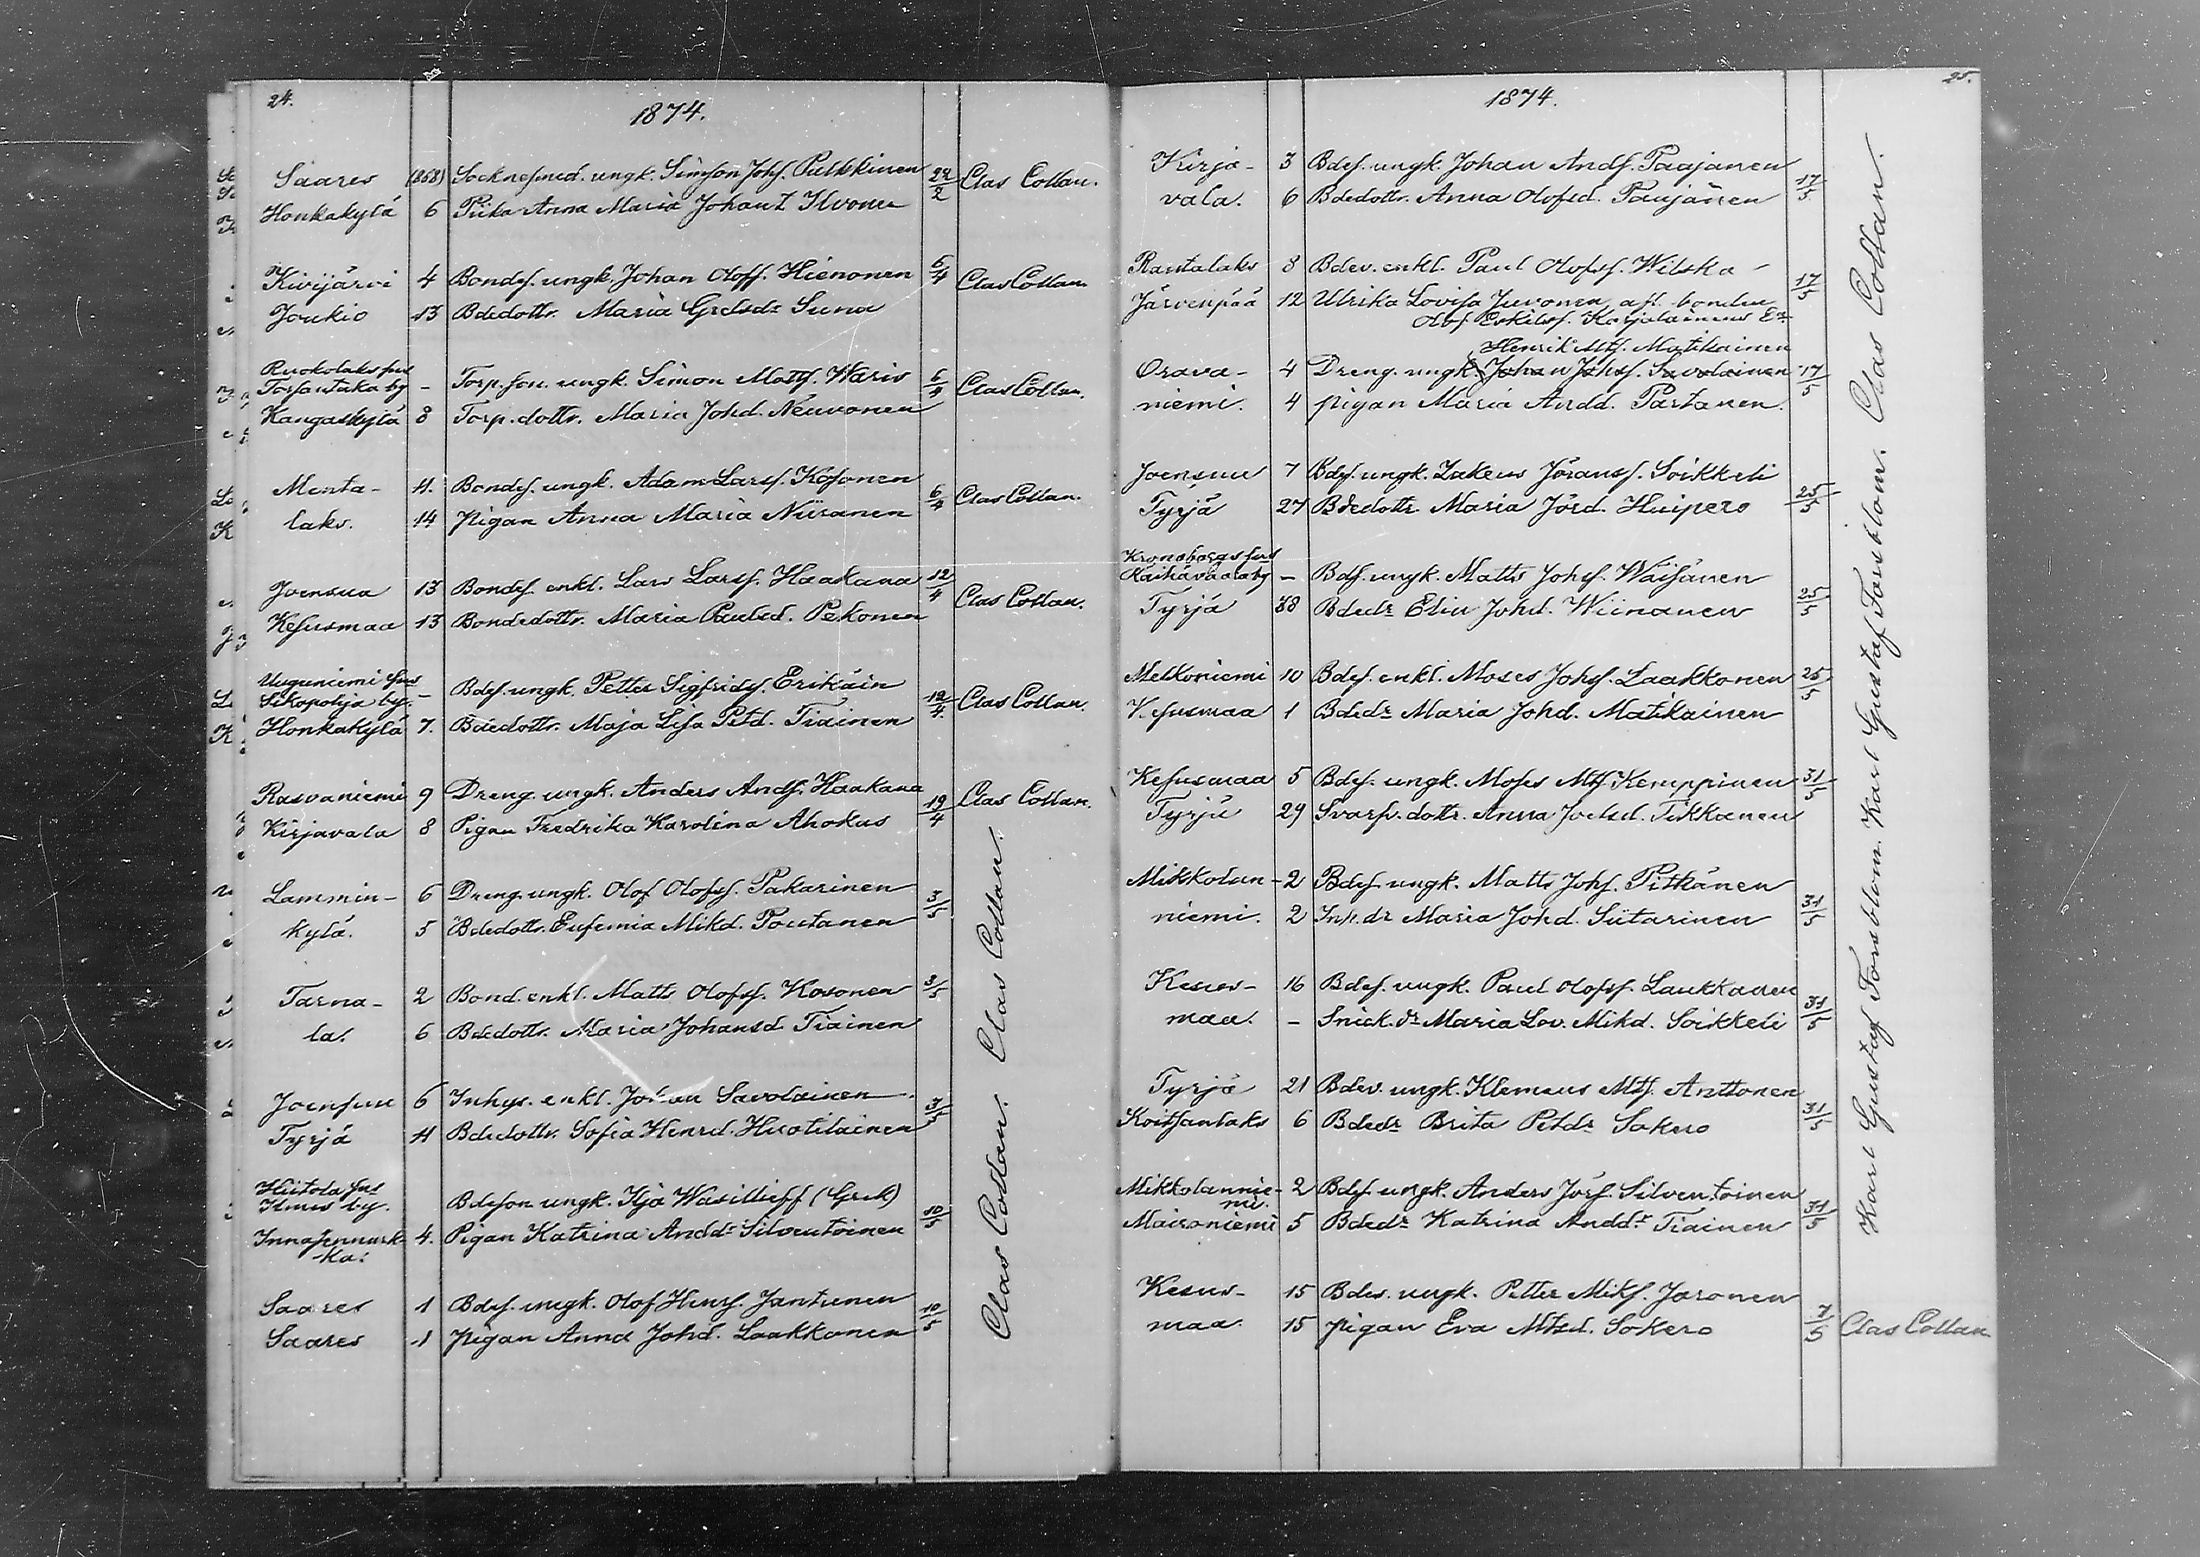 24.
1874.
Saares (868) Socknesmed. ungk. Simson Johs. Pulkkinen 22/2 Clas Collan.
Honkakylä 6 Piika Anna Maria Johant Ilvonen
Kivijärvi 4 Bondes. ungk. Johan Olofs. Hienonen 6/4 Clas Collan
Joukio 13 Bdedottr. Maria Grelsdr Suna
Ruokolaks sns
Torsantaka by - Torp. son. ungk. Simon Matts. Waris 6/4 Clas Collan.
Kangaskylä 8 Torp. dottr. Maria Johd. Neuvonen
Menta- 4. Bondes. ungk. Adam Larss. Kosonen 6/4 Clas Collan.
laks. 14 pigan Anna Maria Niiranen
Joensuu 13 Bondes. enkl. Lars Larss. Haakana 12/4 Clas Collan.
Kesusmaa 13 Bondedottr. Maria Paulsd. Pekonen
Uuguniemi sns
Sikopohja by. - Bdes. ungk. Petter Sigfrids. Erikäin 12/4. Clas Collan.
Honkakylä 7. Bdedottr. Maja Lisa Petd. Tiainen
Rasvaniemi 9 Dreng. ungk. Anders Ands. Haakana 19/4 Clas Collan.
Kirjavala 8 Pigan Fredrika Karolina Ahokas
Lammin- 6 Dreng. ungk. Olof Olofs. Pakarinen 3/5
kylä. 5 Bdedottr. Eufemia Mikd. Poutanen
Tarna- 2 Bond. enkl. Matts Olofs. Kosonen 3/5
la. 6 Bdedottr. Maria Johansd. Tiainen
Joensuu 6 Inhys. enkl. Johan Savolainen 3/5
Tyrjä 4 Bdedottr. Sofia Henrd. Huotilainen
Hiitola sns
Ilmis by. Bdeson ungk. Ilja Wasilieff (Grek) 10/5
Innasennurk- 4. Pigan Katrina Anddr Silventoinen
ka.
Saares 1 Bdes. ungk. Olof Henrs. Jantunen 10/5
Saares 1 pigan Anna Johd. Laakkonen
Clas Collan. Clas Collan.
25.
1874.
Kirja- 3 Bdes. ungk. Johan Ands. Paajanen 17/5
vala. 6 Bdedottr. Anna Olofsd. Paajanen
Rautalaks 8 Bdev. enkl. Paul Olofs. Wilska 17/5
Järvenpää 12 Ulrika Lovisa Juvonen, afl. bonden
Olof Eskilss. Karjalainens Ea
Henrik Mts. Matikainen
Orava- 4 Dreng. ungk. Johan Johs. Savolainen 17/5
niemi. 4 pigan Maria Andd. Partanen.
Joensuu 7 Bdes. ungk. Zakeus Jöranss. Soikkeli 25/5
Tyrjä 27 Bdedottr Maria Jörd. Huipero
Kronoborgs sns
Raihavaara by - Bds. ungk. Matts Johs. Wäisänen 25/5
Tyrjä 38 Bdedr Elin Johd. Wiinanen
Melkoniemi 10 Bdes. enkl. Moses Johs. Laakkonen 25/5
Kesusmaa 1 Bdedr Maria Johd. Matikainen
Kesusmaa 5 Bdes. ungk. Moses Mts Kemppinen 31/5
Tyrjä 29 Svarfv. dottr. Anna Joelsd. Tikkanen
Mikkolan- 2 Bdes. ungk. Matts Johs. Pitkänen 31/5
niemi. 2 Inh. dr Maria Johd. Siitarinen
Kesus- 16 Bdes. ungk. Paul Olofs. Laukkanen 31/5
maa. - Snick. dr Maria Lov. Mikd. Soikkeli
Tyrjä 21 Bdes. ungk. Klemens Mts. Anttonen 31/5
Koitsanlaks 6 Bdedr Brita Petdr Sokero
Mikkolannie- 2 Bdes. ungk. Anders Jörs. Silventoinen 31/5
mi.
Maironiemi 5 Bdedr Katrina Anddr Tiainen
Kesus- 15 Bdes. ungk. Petter Miks. Jaronen 7/5 Clas Collan
maa. 15 pigan Eva Mtsd. Sokero
Karl Gustaf Forsblom. Karl Gustaf Forsblom. Clas Collan.